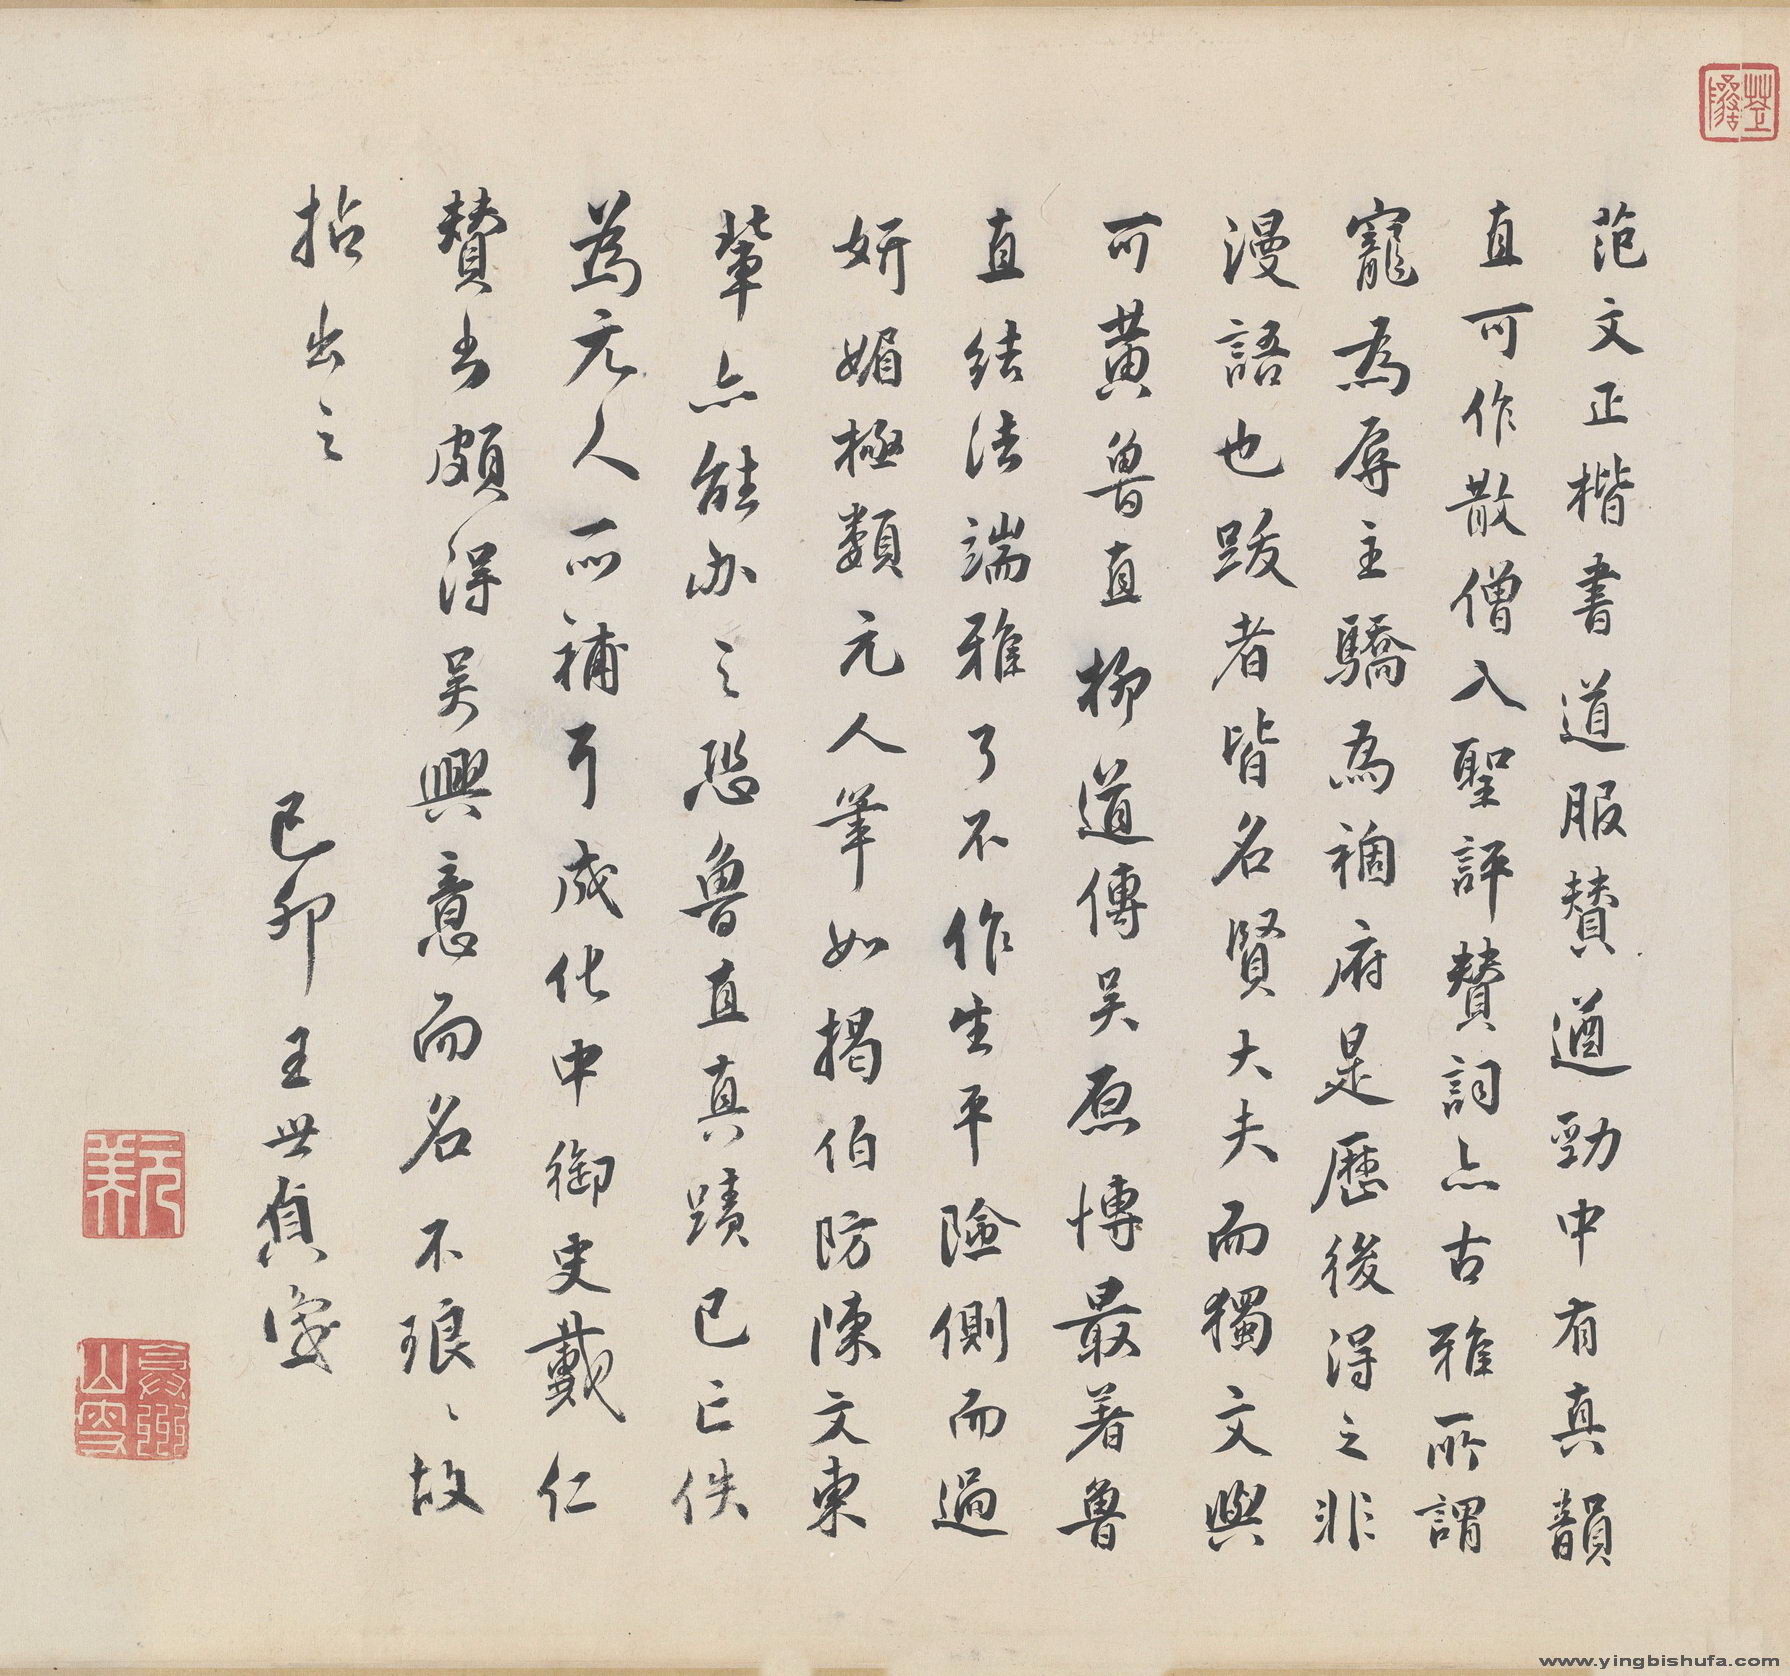 范文正楷書道服贊遒勁中有真韻
直可作散僧入聖評贊詞亦古雅所謂
寵為辱主驕為禍府是歷後得之非
漫語也跋者皆名賢大夫而獨文與
可黃魯直柳道傳吳原博最著魯
直結法端雅了不作生平險側而過
妍媚極類元人筆如揭伯防陳文東
輩亦能办之恐魯直真蹟已亡佚
為元人所補耳成化中御史戴仁
贊書頗得吳興意而名不琅〻故
拈出之
己卯王世貞識
www.yingbishufa.com